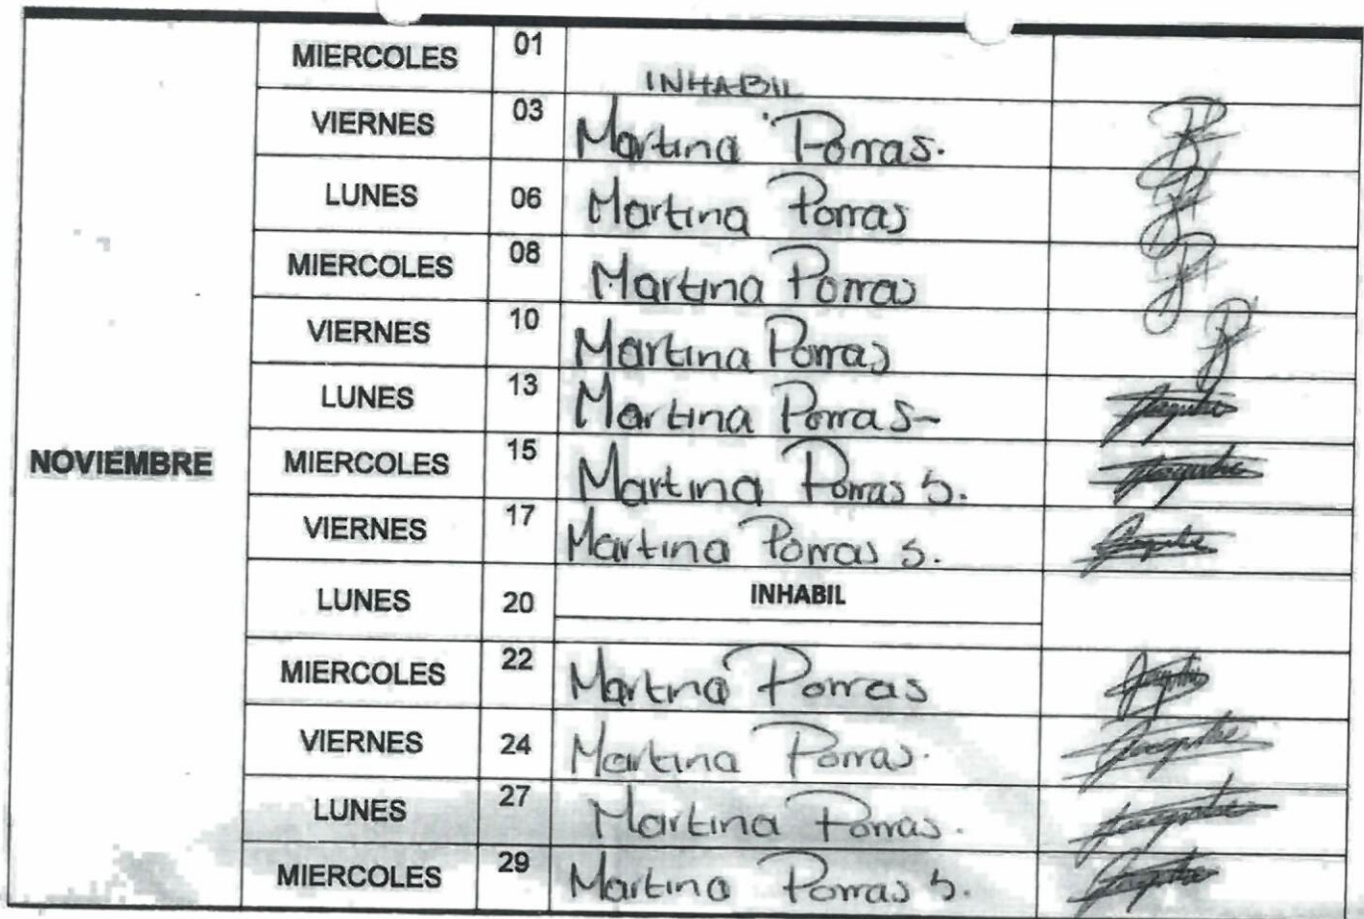 MIERCOLES 01 INHABIL
VIERNES 03 Martina Porras.
LUNES 06 Martina Porras
MIERCOLES 08 Martina Porras
VIERNES 10 Martina Porras
LUNES 13 Martina Porras
NOVIEMBRE MIERCOLES 15 Martina Porras S.
VIERNES 17 Martina Porras S.
LUNES 20 INHABIL
MIERCOLES 22 Martina Porras
VIERNES 24 Martina Porras.
LUNES 27 Martina Porras.
MIERCOLES 29 Martina Porras S.